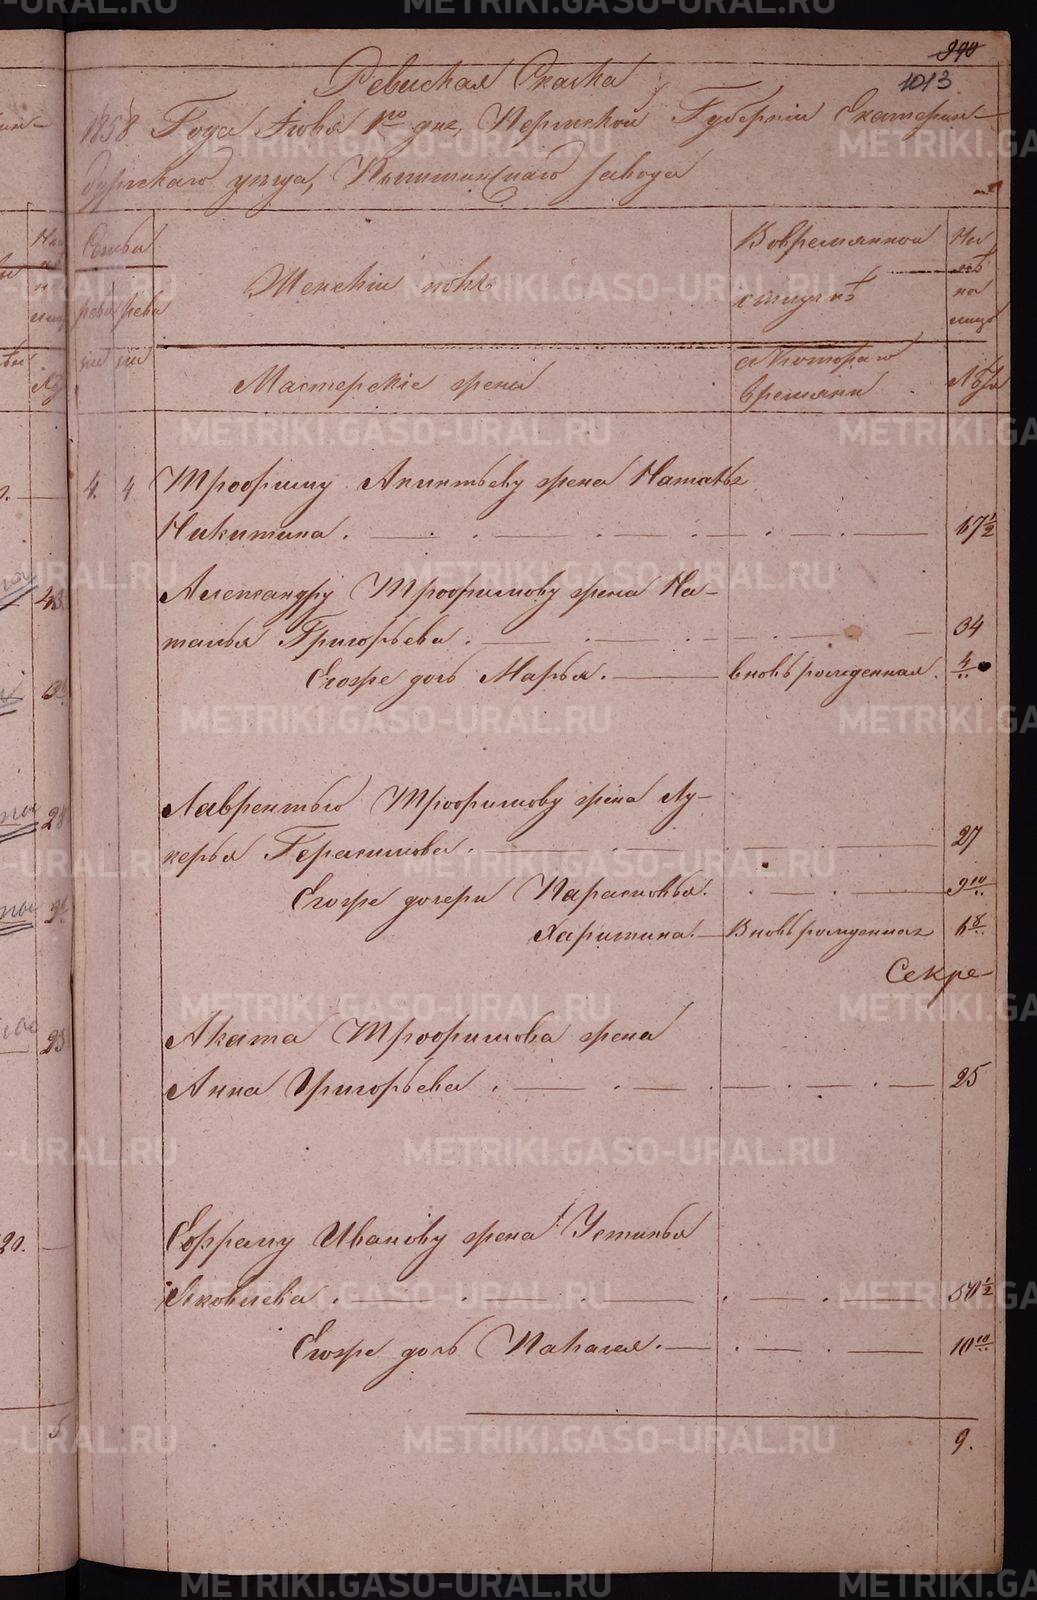 990
1013
Ревиская Скаска
1858 Года Июня 1го дня, Пермской Губерніи Екатерин-
бургскаго уезда, Пышминскаго завода
Семьи
Женскій полъ
Вовремянной
отлучкѣ
Ны
нѣ
на
лицо
реви
зіи
реви
зіи
Мастерскіе жены
съ Котораго
времяни
Лѣта
4. 4 Трофиму Акинтьеву жена Наталья
Никитина. 67½
Александру Трофимову жена На-
талья Григорьева. 34
Егоже дочь Марья. вновьрожденная. 4
Лаврентью Трофимову жена Лу-
керья Герасимова. 27
Егоже дочери Парасковья. 9 10/..
Харитина. Вновьрожденная 6 8/..
Секре-
Аката Трофимова жена
Анна Григорьева. 25
Ефрему Иванову жена Устинья
Яковлева. 50½
Егоже дочь Палагея. 10 10/..
9.
METRIKI.GASO-URAL.RU